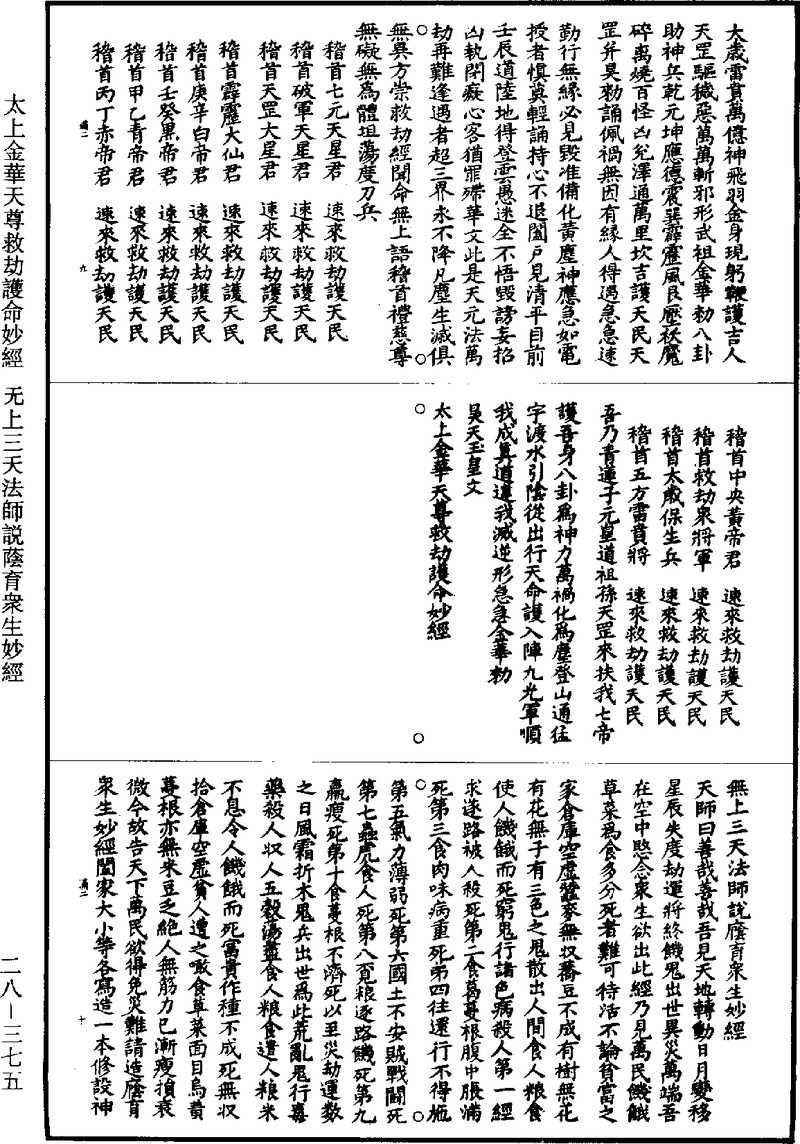 太歲雷賁萬億神飛羽金身現躬鞭護吉人
天罡驅穢惡萬萬斬邪形武祖金華勑八卦
助神兵乾元坤應德震巽霹靂風艮壓祅魔
碎离燒百怪凶兊澤通萬里坎吉護天民天
罡并昊勑誦佩禍無因有緣人得遇急急速
勤行無緣必見毀准備化黃塵神應急如電
授者慎莫輕誦持心不退闔戶見清平目前
壬辰道陸地得登雲愚迷全不悟毀謗妄招
凶執閉癡心客猶罪殢華文此是天元法萬
劫再難逢遇者超三界永不降凡塵生滅俱
無異方崇救劫經聞命無上語稽首禮慈尊
無礙無爲體坦蕩度刀兵
稽首七元天星君 速來救劫護天民
稽首破軍天星君 速來救劫護天民
稽首天罡大星君 速來救劫護天民
稽首霹靂大仙君 速來救劫護天民
稽首庚辛白帝君 速來救劫護天民
稽首壬癸黑帝君 速來救劫護天民
稽首甲乙青帝君 速來救劫護天民
稽首丙丁赤帝君 速來救劫護天民
九
稽首中央黃帝君 速來救劫護天民
稽首救劫衆將軍 速來救劫護天民
稽首太歲保生兵 速來救劫護天民
稽首五方雷賁將 速來救劫護天民
吾乃青蓮子元皇道祖孫天罡來扶我七帝
護吾身八卦爲神力萬禍化爲塵登山通猛
宇渡水引陰從出行天命護入陣九光軍順
我成真道違我滅逆形急急金華勑
昊天玉皇文
太上金華天尊救劫護命妙經
無上三天法師說廕育衆生妙經
天師曰善哉善哉吾見天地轉動日月變移
星辰失度劫運將終餓鬼出世異災萬端吾
在空中愍念衆生欲出此經乃見萬民饑餓
草菜爲食多分死者難可待活不論貧富之
家倉庫空虛蠶麥無収喬豆不成有樹無花
有花無子有三色之鬼散出人間食人粮食
使人饑餓而死窮鬼行諸色病殺人第一經
求逐路被人殺死第二食葛蔓根腹中脹滿
死第三食肉味病重死第四往還行不得瓶
死
第五氣力薄弱死第六國土不安賊戰鬪死
第七蟲虎食人死第八覓粮逐路饑死第九
羸瘦死第十食蔓根不濟死以至災劫運数
之日風霜折木鬼兵出世爲此荒亂鬼行毒
藥殺人収人五穀蕩盡食人粮食遣人粮米
不息令人饑餓而死富貴作種不成死無収
拾倉庫空虛貧人遭之噉食草菜面目烏黃
蔓根亦無米豆乏絕人無筋力已漸瘦損衰
微今故告天下萬民欲得免災難請造廕育
衆生妙經闔家大小等各寫造一本修設神
十
太上金華天尊救劫護命妙經 无上三天法師説蔭育衆生妙經
二八—三七五